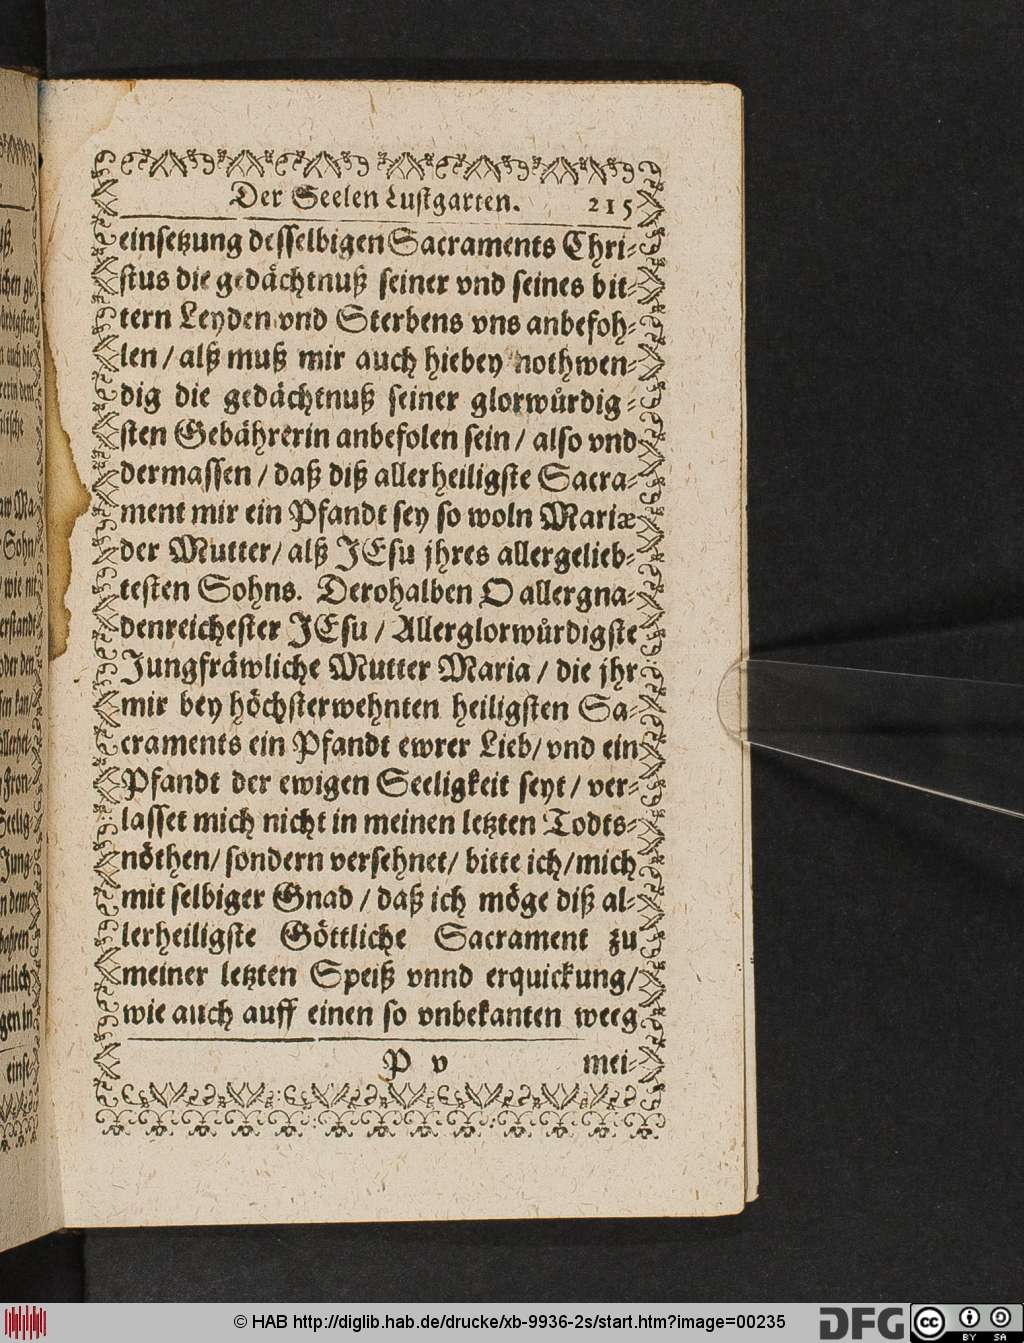 Der Seelen Lustgarten. 215
einsetzung desselbigen Sacraments Chri-
stus die gedächtnuß seiner vnd seines bit-
tern Leyden vnd Sterbens vns anbefoh-
len / alß muß mir auch hiebey nothwen-
dig die gedächtnuß seiner glorwůrdig-
sten Gebährerin anbefolen sein / also vnd
dermassen / daß diß allerheiligste Sacra-
ment mir ein Pfandt sey so woln Mariæ
der Mutter / alß JEsu jhres allergelieb-
testen Sohns. Derohalben O allergna-
denreichester JEsu / Allerglorwůrdigste
Jungfräwliche Mutter Maria / die jhr
mir bey höchsterwehnten heiligsten Sa-
craments ein Pfandt ewrer Lieb / vnd ein
Pfandt der ewigen Seeligkeit seyt / ver-
lasset mich nicht in meinen letzten Todts-
nöthen / sondern versehnet / bitte ich / mich
mit selbiger Gnad / daß ich möge diß al-
lerheiligste Göttliche Sacrament zu
meiner letzten Speiß vnnd erquickung /
wie auch auff einen so vnbekanten weeg
P v mei-
© HAB http://diglib.hab.de/drucke/xb-9936-2s/start.htm?image=00235
DFG
cc BY SA